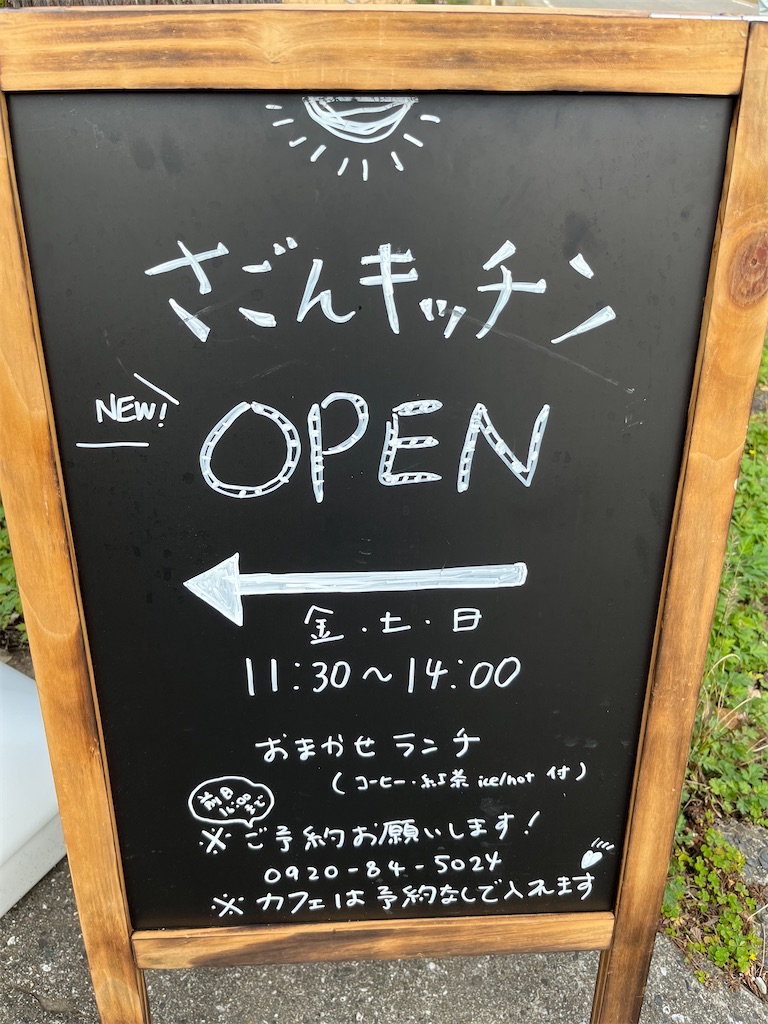 さごんキッチン
NEW!
OPEN
金・土・日
11:30～14:00
おまかせランチ
(コーヒー・紅茶 ice/hot 付)
前日
16:00
まで
※ご予約お願いします!
0920-84-5024
※カフェは予約なしで入れます